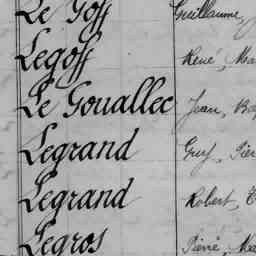 Le Goff Guillaume,
Legoff René, Ma
Le Gouallec Jean, Bap
Legrand Guy, Pier
Legrand Robert, E
Legros Pierre, Ma